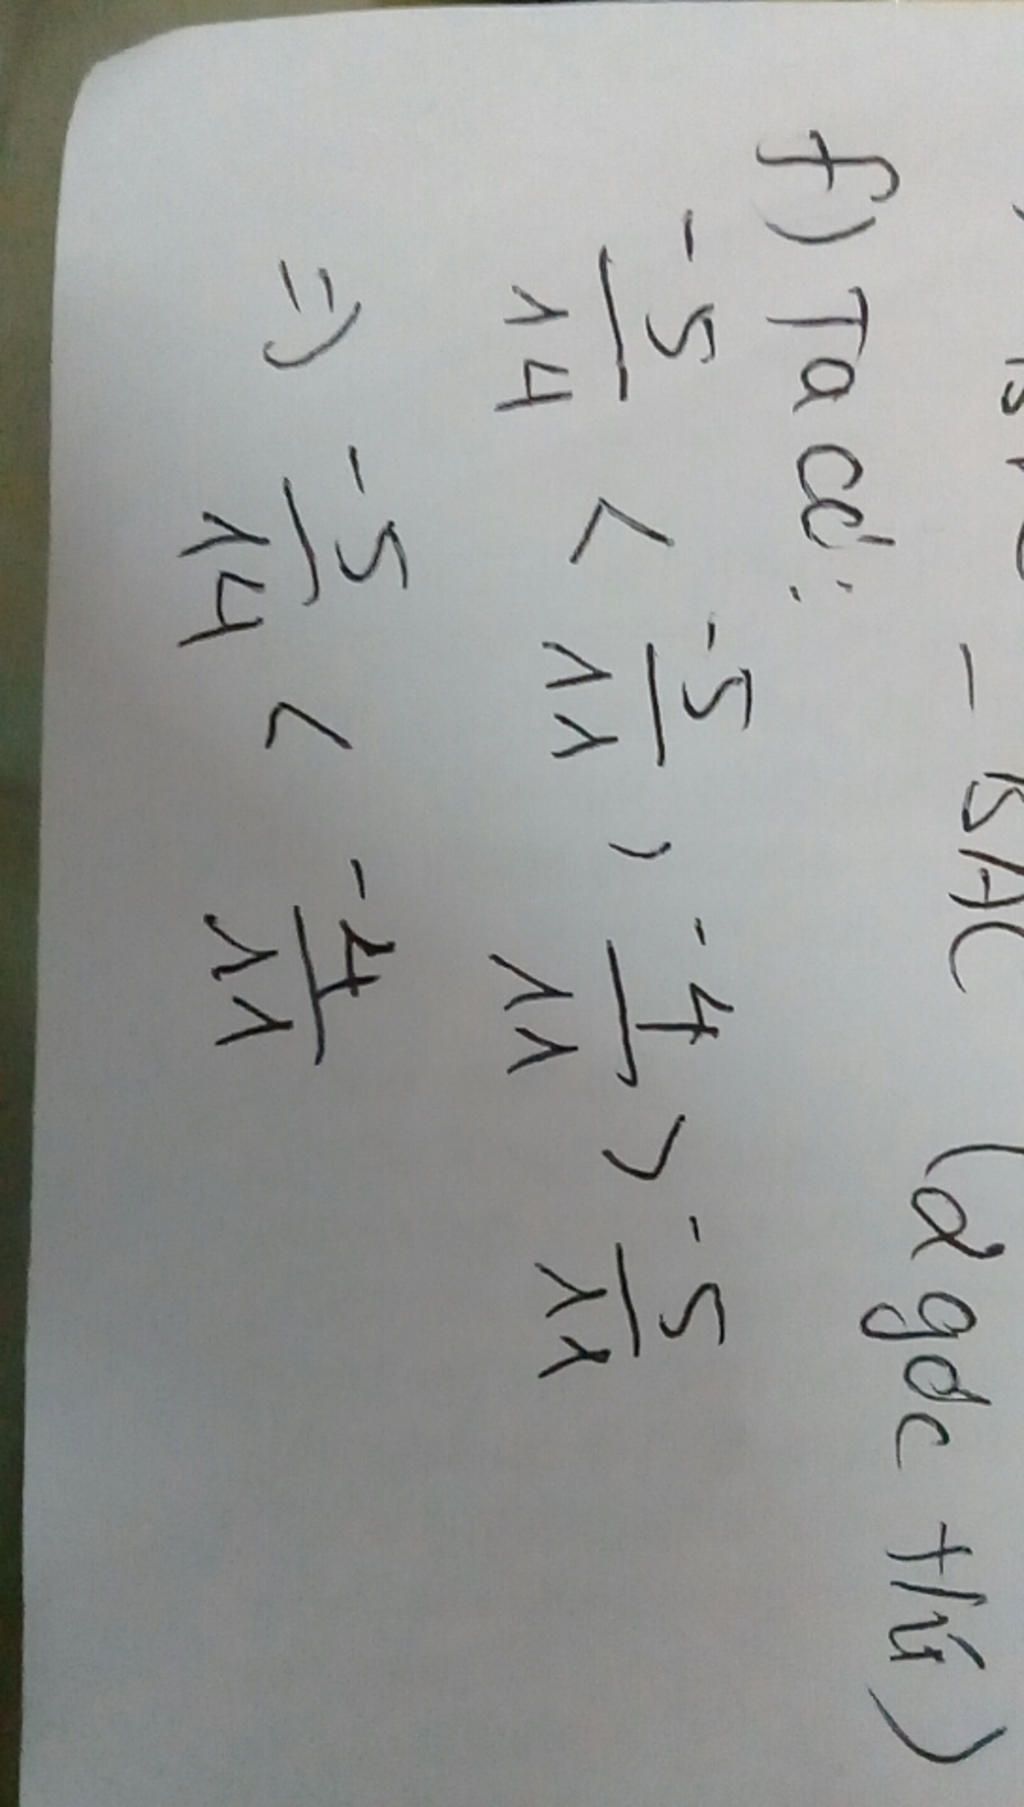 - BAC (2 góc t/ứ)
f) Ta có:
-5/14 < -5/11 , -4/11 > -5/11
=) -5/14 < -4/11